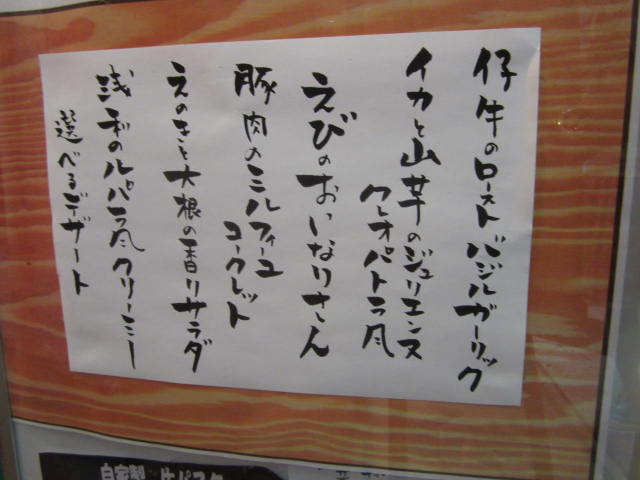 仔牛のローストバジルガーリック
イカと山芋のジュリエンヌ
クレオパトラ風
えびのおいなりさん
豚肉のミルフィーユ
コークレット
えのきと大根の香りサラダ
浅利のルパラ風クリーミー
選べるデザート
自家製 生パスタ